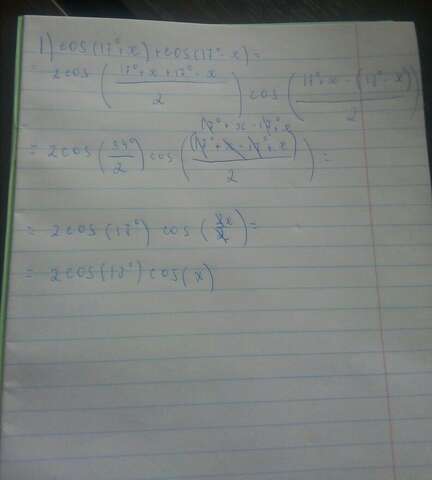 1) cos(17°+x)+cos(17°-x)=
= 2cos((17°+x+17°-x)/2) cos((17°+x-(17°-x))/2)
= 2cos(34°/2) cos((17°+x-17°+x)/2) =
= 2cos(17°) cos(2x/2)=
= 2cos(17°)cos(x)